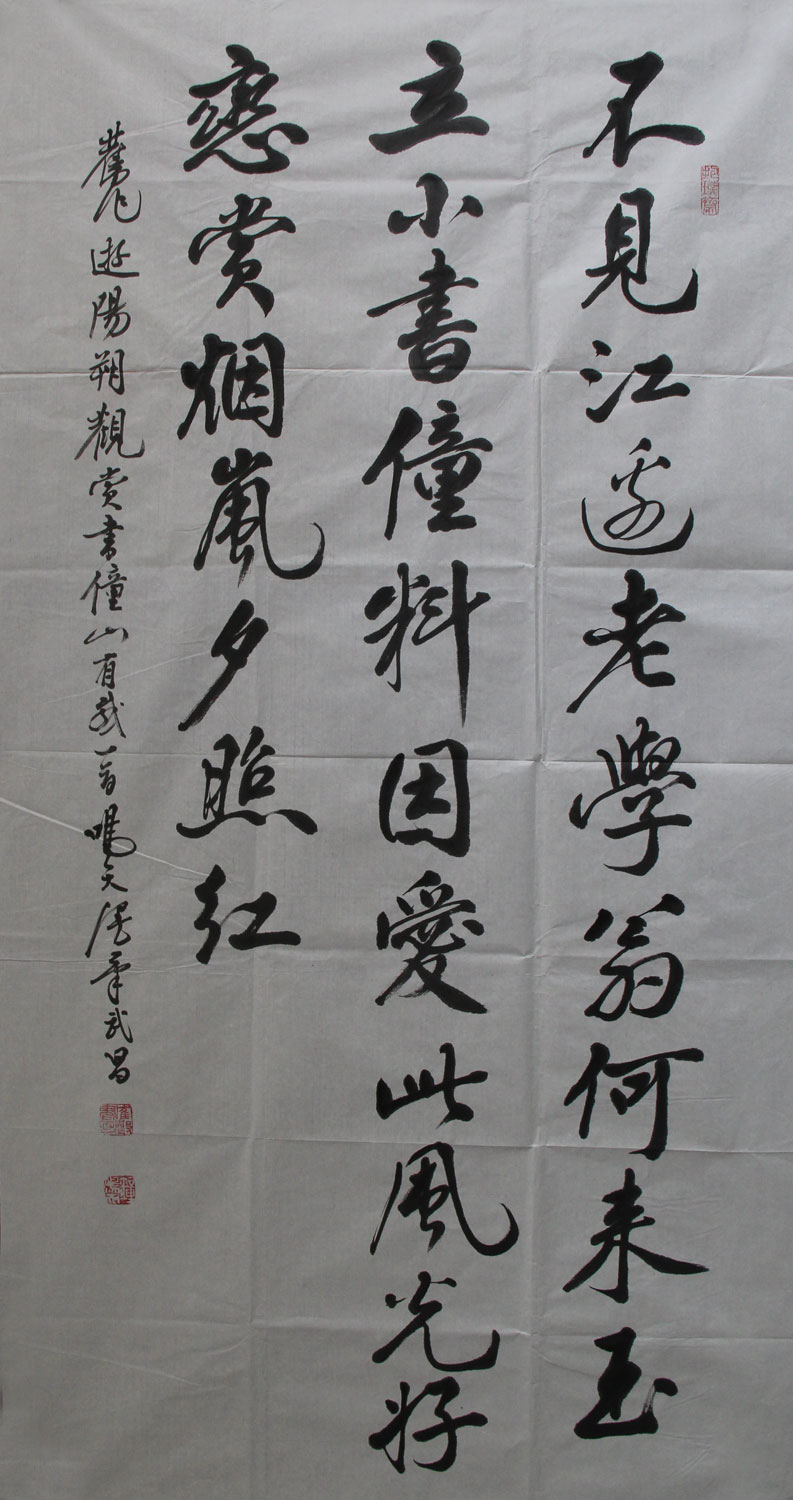 不見江邊老學翁何来玉
立小書僮料因愛此風光好
戀賞烟嵐夕照紅
舊作遊陽朔觀賞書僮山有感一首鳴天漫筆武昌